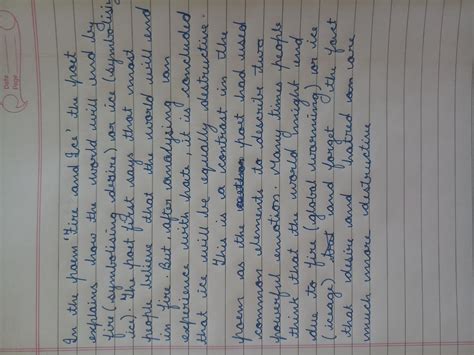 Date
Page
In the poem 'Fire and Ice' the poet
explains how the world will end by
fire (symbolising desire) or ice (symbolising
ice). The poet first says that most
people believe that the world will end
in fire. But, after analysing an
experience with hate, it is concluded
that ice will be equally destructive.
This is a contrast in the
poem as the poet had used
common elements to describe two
powerful emotion. Many times people
think that the world might end
due to fire (global warming) or ice
(iceage) and forget the fact
that desire and hatred are
much more destructive